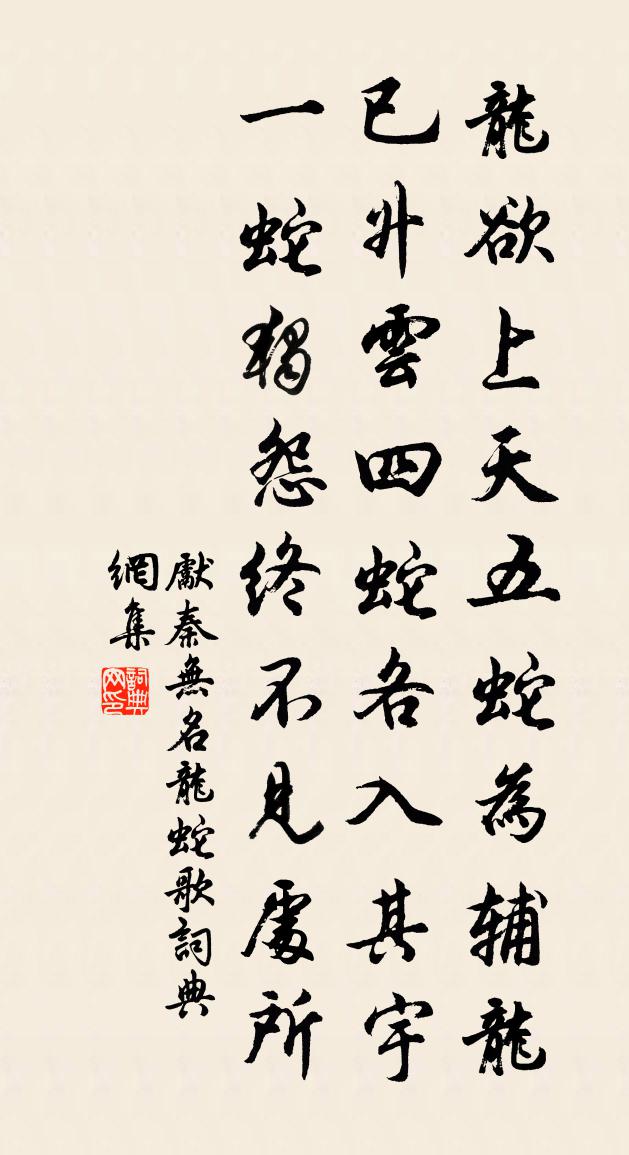 龍欲上天五蛇為辅龍
已升雲四蛇各入其宇
一蛇獨怨终不見處所
獻秦無名龍蛇歌詞典
網集
詞典
网印